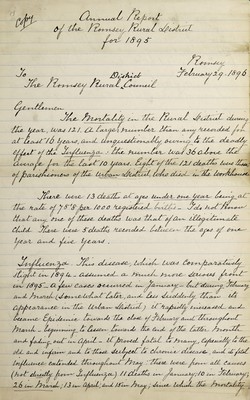 Copy
Annual Report
of the Romsey Rural District
for 1895
Romsey
February 29. 1896
To
The Romsey Rural District Council
Gentlemen
The Mortality in the Rural District during
the year was 121. A larger number than any recorded for
at least 16 years, and unquestionably owing to the deadly
effect of the Influenza. The number was 36 above the
average for the last 10 years. Eight of the 121 deaths were those
of parishioners of the Urban District who died in the Workhouse
There were 13 deaths at ages under one year being at
the rate of 78.8 per 1000 registered births. I do not know
that any one of these deaths was that of an illegitimate
child. There were 5 deaths recorded between the ages of one
year and five years.
Influenza. This disease, which was comparatively
slight in 1894 assumed a much more serious front
in 1895. A few cases occurred in January but during February
and March (somewhat later, and less suddenly than its
appearance in the Urban District) it rapidly increased and
became Epidemic towards the close of February and throughout
March. beginning to lessen toward the end of the latter Month
and fading out in April. It proved fatal to many, especially to the
old and infirm and to those subject to chronic disease, and its fatal
influence extended throughout May. There were from all causes
(not directly from Influenza) 11 deaths in January, 10 in February,
26 in March, 13 in April, and 18 in May, since which the Mortality